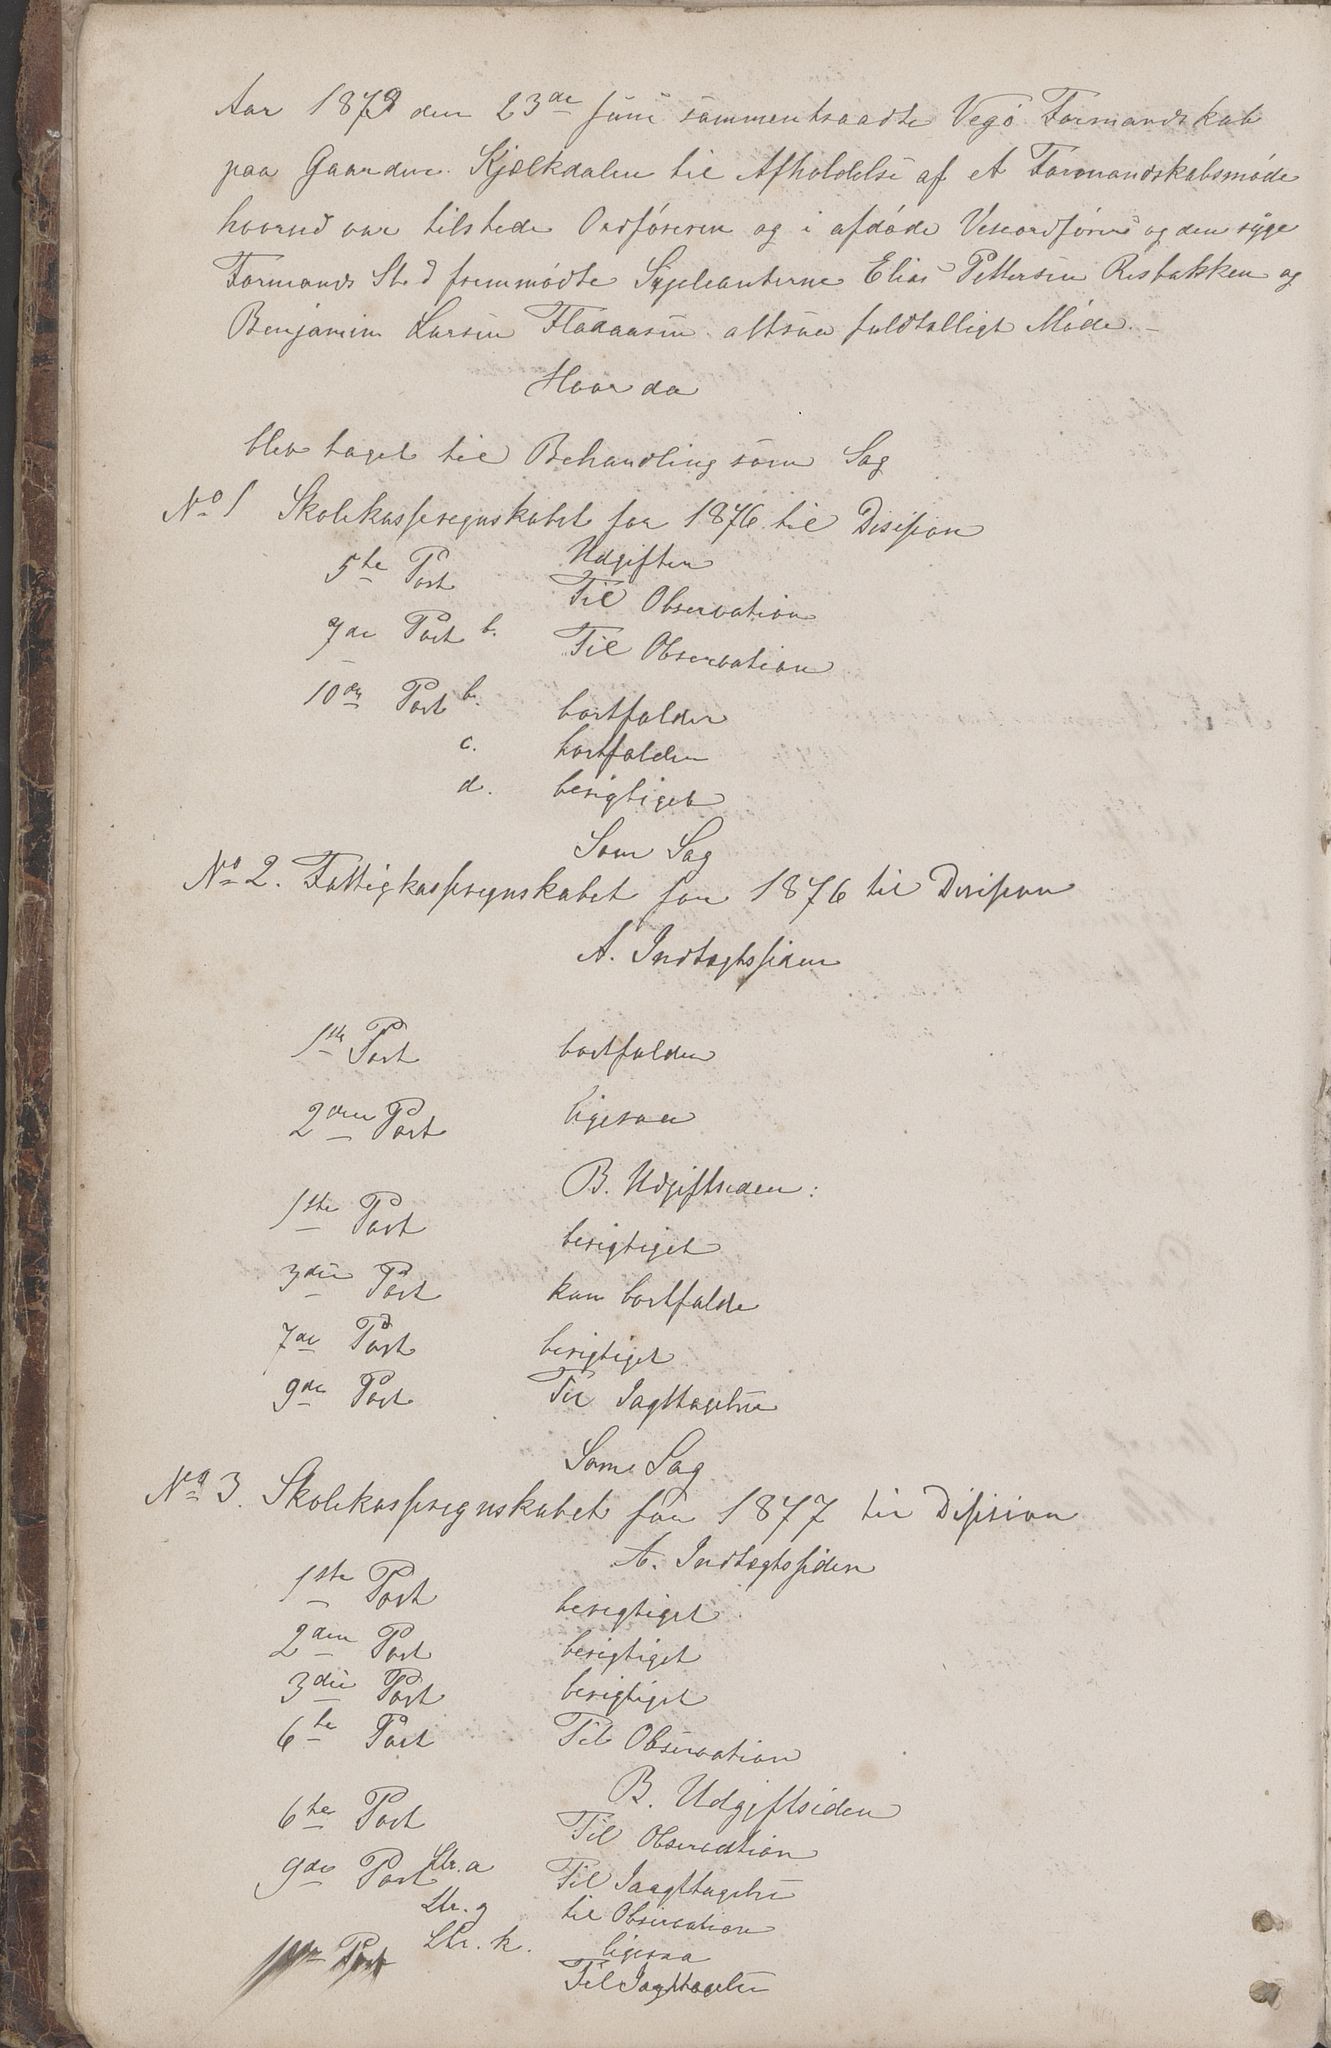 Aar 1879 den 23de Juni sammentraadte Vegø Formandskab
paa Gaarden Kjælkdalen til Afholdelse af et Formandskabsmøde
hvorved var tilstede Ordføreren og i afdøde Viseordførers og den syge
Formands Sted fremmødte Supleanterne Elias Pettersen Risbakken og
Benjamin Larsen Flodaasen altsaa fuldtalligt Møde. –
Hvor da
blev taget til Behandling som Sag
No 1 Skolekasseregnskabet for 1876 til Desision
Udgiften
5te Post Til Observation
7de Post b. Til Observation
10de Post b. bortfalder
c. bortfalder
d. berigtiget
Som Sag
No 2. Fattigkasseregnskabet for 1876 til Desision
A. Indtægtssiden
1ste Post bortfalder
2den Post ligesaa
B. Udgiftsiden:
1ste Post berigtiget
3die Post kan bortfalde
7de Post berigtiget
9de Post Til Iagttagelse
Som Sag
No 3. Skolekasseregnskabet for 1877 til Dissision
A. Indtægtssiden
1ste Post berigtiget
2den Post berigtiget
3die Post berigtiget
6te Post Til Observation
B. Udgiftsiden
6te Post Til Observation
9de Post Ltr. a Til Iagttagelse
Ltr. g til Observation
Ltr. h. ligesaa
Post Til Iagttagelse